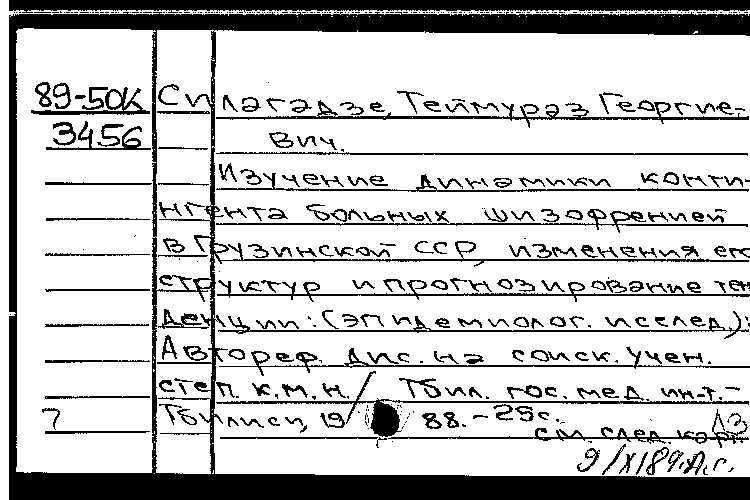 89-50К Силагадзе, Теймураз Георгие-
3456 вич.
Изучение динамики конти-
нгента больных шизофренией
в Грузинской ССР, изменения его
структур и прогнозирование тен
денции: (эпидемиолог. исслед.):
Автореф. дис. на соиск. учен.
степ. к.м.н. / Тбил. гос. мед. ин-т.-
Тбилиси, 19 88. - 25с.
см. след. карт
9/XI89.А.С.